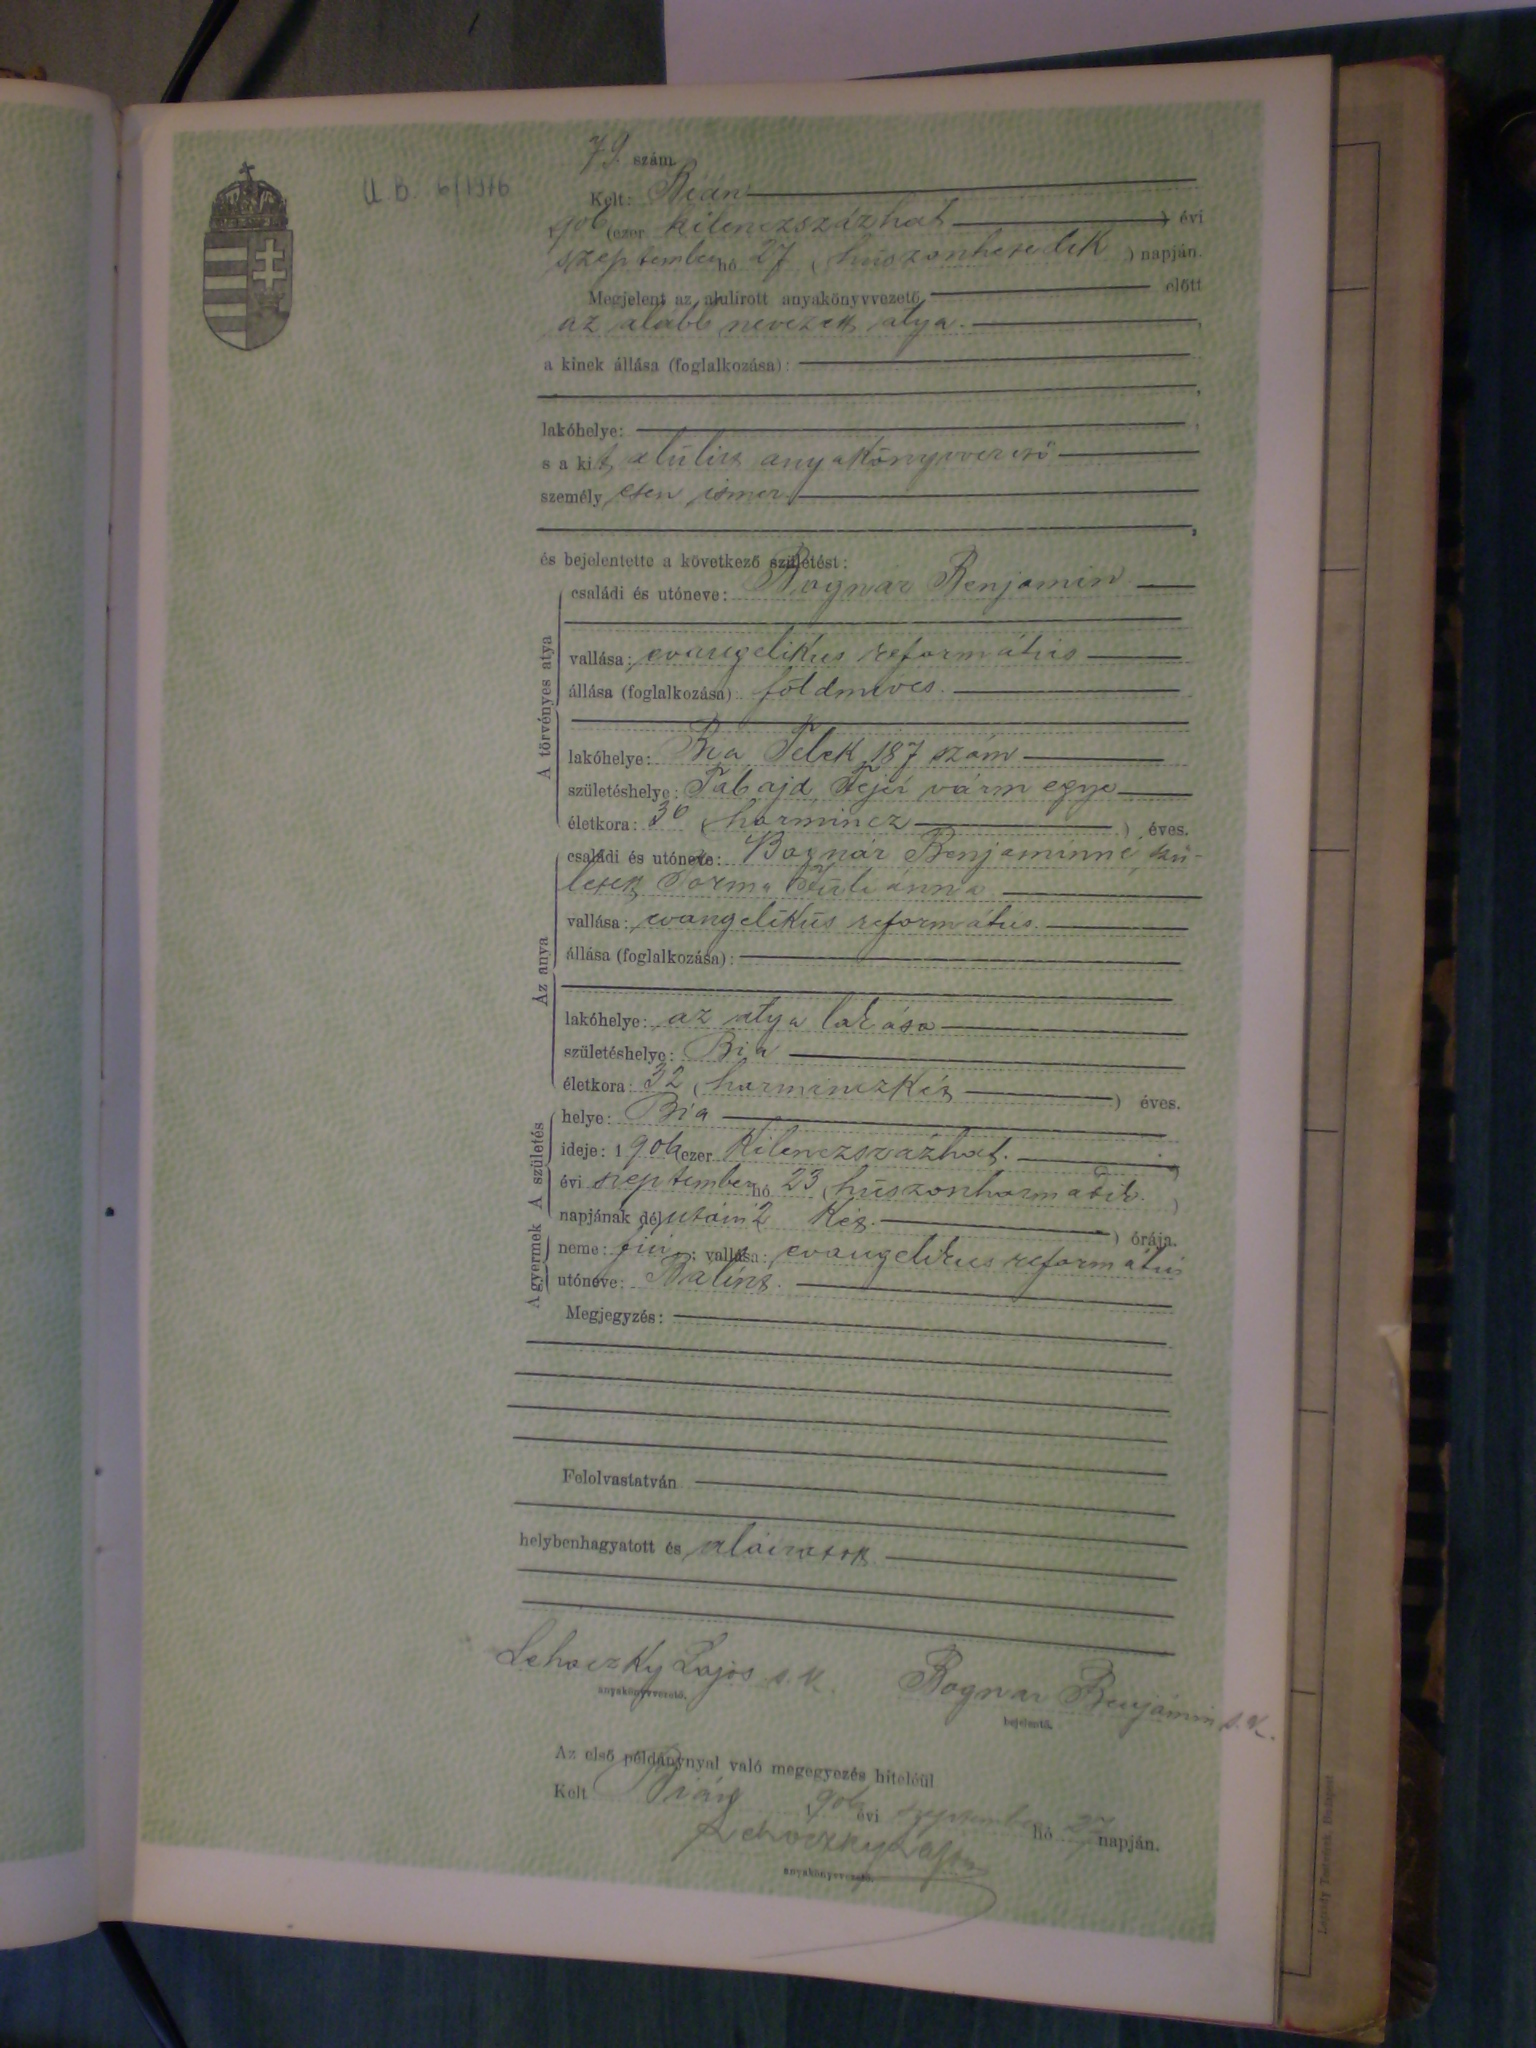 79. szám
U. B. 6/1976
Kelt: Bián
906 (ezer kilenczszázhat ) évi
szeptember hó 27 (huszonhetedik ) napján.
Megjelent az alulírott anyakönyvvezető előtt
az alább nevezett atya.
a kinek állása (foglalkozása):
lakóhelye:
s a kit alulirt anyakönyvvezető
személyesen ismer.
és bejelentette a következő születést:
A törvényes atya
családi és utóneve: Bognár Benjamin
vallása: evangelikus református
állása (foglalkozása): földmives.
lakóhelye: Bia Telek 187 szám
születéshelye: Tabajd Fejér vármegye
életkora: 30 (harmincz ) éves.
Az anya
családi és utóneve: Bognár Benjaminné, szü-
letett Torma Juliánna
vallása: evangelikus református.
állása (foglalkozása):
lakóhelye: az atya lakása
születéshelye: Bia
életkora: 32 (harminczkét ) éves.
A születés
helye: Bia
ideje: 1906 (ezer kilenczszázhat.
évi szeptember hó 23 (huszonharmadik. )
napjának délutáni 2 két. ) órája.
A gyermek
neme: fiú; vallása: evangelikus református
utóneve: Balint.
Megjegyzés:
Felolvastatván
helybenhagyatott és aláiratott.
Lehoczky Lajos s. k. Bognar Benjámin s. k.
anyakönyvvezető. bejelentő.
Az első példánynyal való megegyezés hiteléül
Kelt Bián 906 évi szeptember hó 27 napján.
Lehoczky Lajos
anyakönyvvezető.